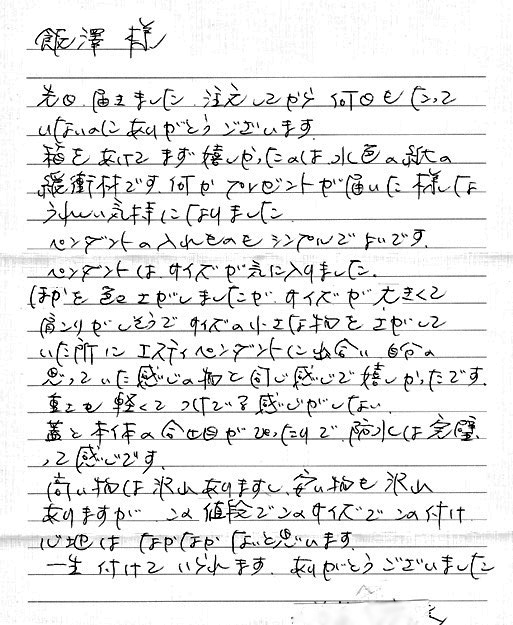 飯澤 様
先日 届きました 注文してから 何日も たって
いないのに ありがとう ございます
箱を あけて まず 嬉しかったのは、水色の紙の
緩衝材です。何か プレゼントが 届いた 様な
うれしい気持に なりました
ペンダントの入れものも シンプルで よいです。
ペンダントは、サイズが気に入りました。
ほかを 色々 さがしましたが サイズが 大きくて
肩こりがしそうで サイズの小さな物を さがして
いた所に エスティペンダントに出会い 自分の
思っていた感じの物と 同じ感じで 嬉しかったです。
重さも 軽くて つけてる 感じがしない
蓋と 本体の 合せ目が ぴったりで 防水には 完璧
って 感じです。
高い物は 沢山 ありますし、安い物も 沢山
ありますが この 値段で このサイズで この付け
心地は なかなか ないと思います
一生 付けて いられます ありがとう ございました